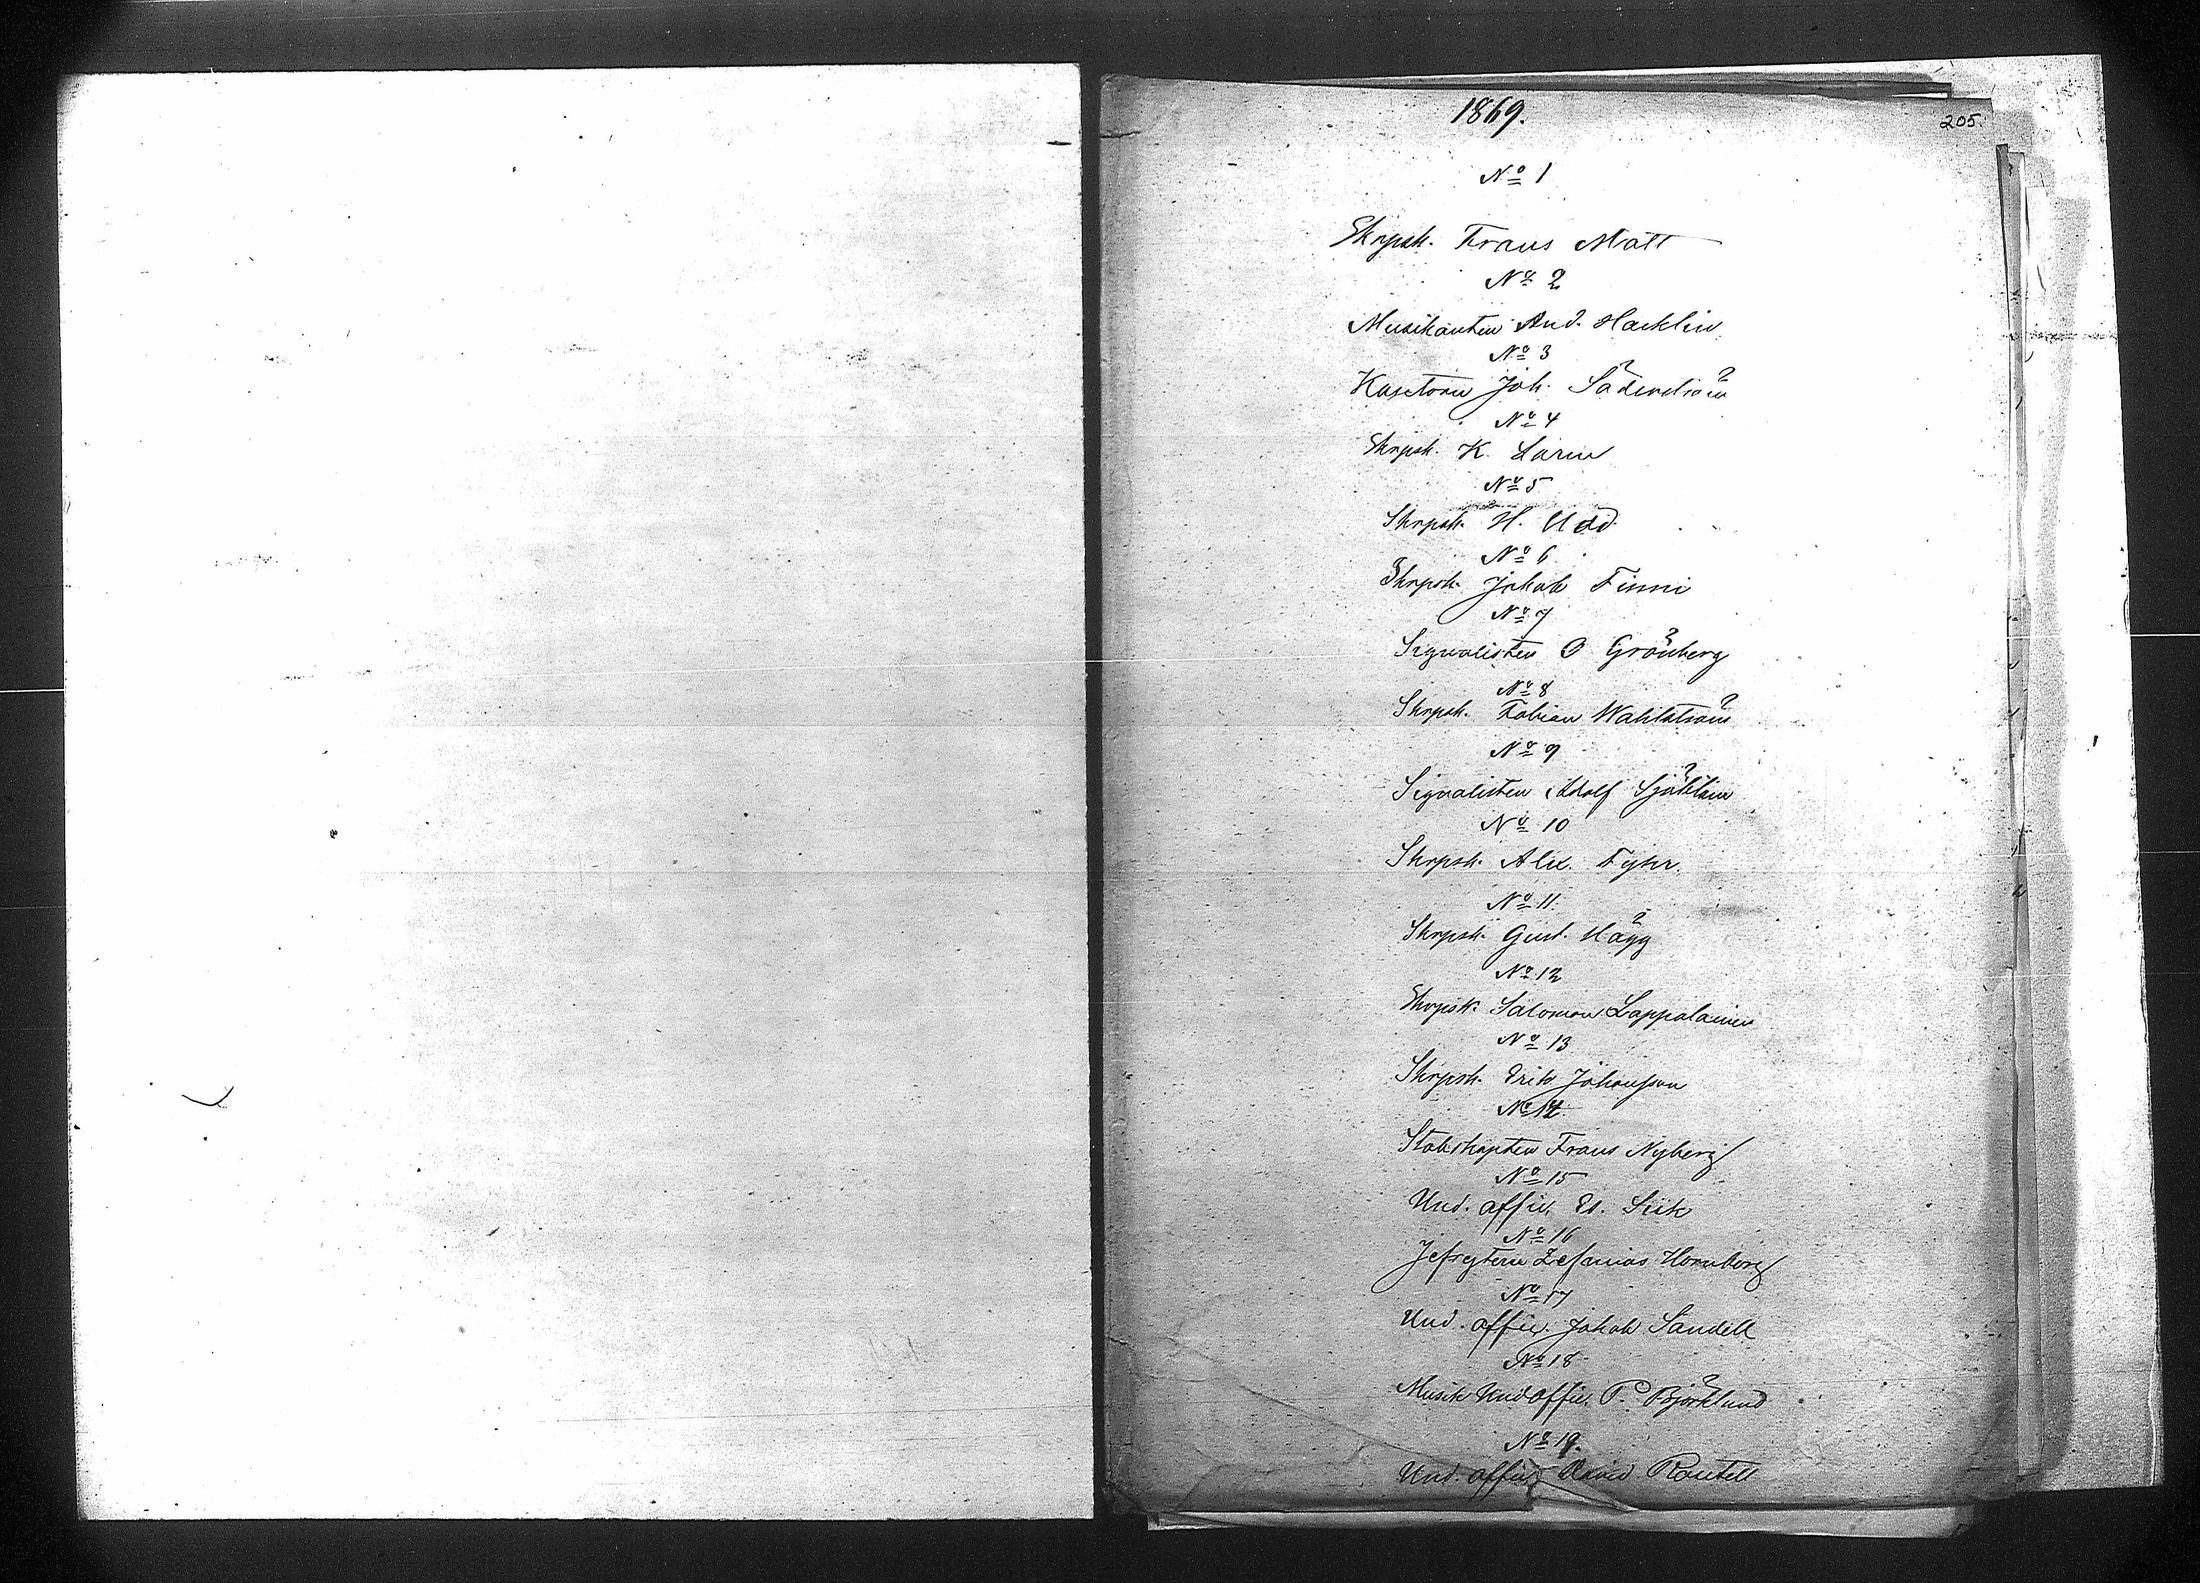 1869.
205.
No 1
Skrpsk. Frans Matt
No 2
Musikanten And. Hacklin
No 3
Joh. Söderström
No 4
Skrpsk. K. Larin
No 5
Skrpsk. H. Udd.
No 6
Skrpsk. Jakob Finni
No 7
Signalisten O Grönberg
No 8
Skrpsk. Fabian Wahlström
No 9
Signalisten Adolf
No 10
Skrpsk. Alex. Fyhr.
No 11.
Skrpsk. Gust. Hägg
No 12
Skrpsk. Salomon Lappalainen
No 13
Skrpsk. Erik Johansson
No 14
Stabskapten Frans Nyberg
No 15
Und. offic. Ed. Siik
No 16
Jefreytern Zefanias Hornborg
No 17
Und. offic. Jakob Sandell
No 18
Musik Und offic. P. Björklund
No 19.
Und. offic. David Rautell